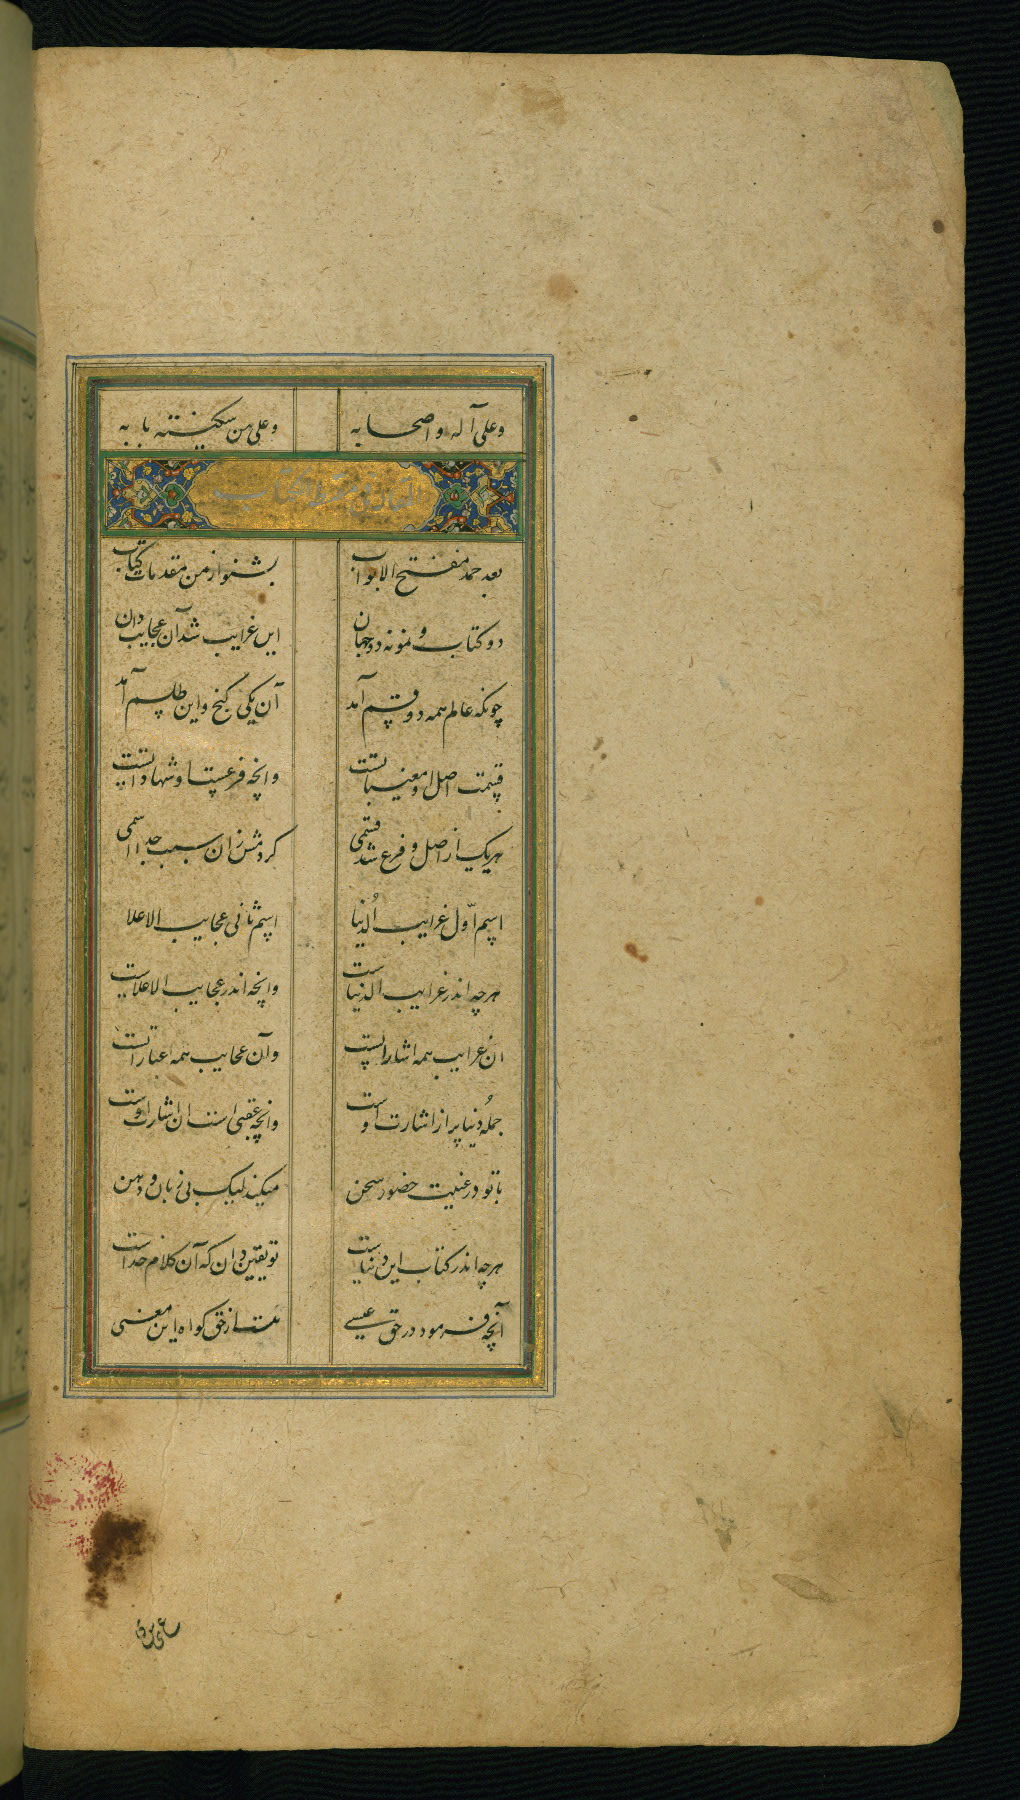 وعلی آله و اصحابه
وعلی من سکینته بابه
المقالة فی مقدمة الکتاب
بعد حمد مفتح الابواب
بشنو از من مقدمات کتاب
دو کتاب و نمونه دو جهان
این غرایب شد آن عجایب دان
چونکه عالم همه دو قسم آمد
آن یکی گنج و این طلسم آمد
قسمت اصل او مغیباتست
وانچه فرعست او شهاداتست
هر یک از اصل و فرع شد قسمی
کردمش زان سبب جدا اسمی
اسم اوّل غرایب الدُنیا
اسم ثانی عجایب الاعلا
هرچه اندر غرایب الدنیاست
وانچه اندر عجایب الاعلاست
ان غرایب همه اشاراتست
وآن عجایب همه اعتباراتست
جملهُ دنیا پر از اشارت اوست
وانچه عقبی است ان اشارت اوست
با تو در غیبت حضور سخن
میکند لیک بی زبان و دهن
هرچه اندر کتاب این دنیاست
تو یقین دان که آن کلام خداست
آنچه فرمود در حق عیسی
هست از حق کواه این معنی